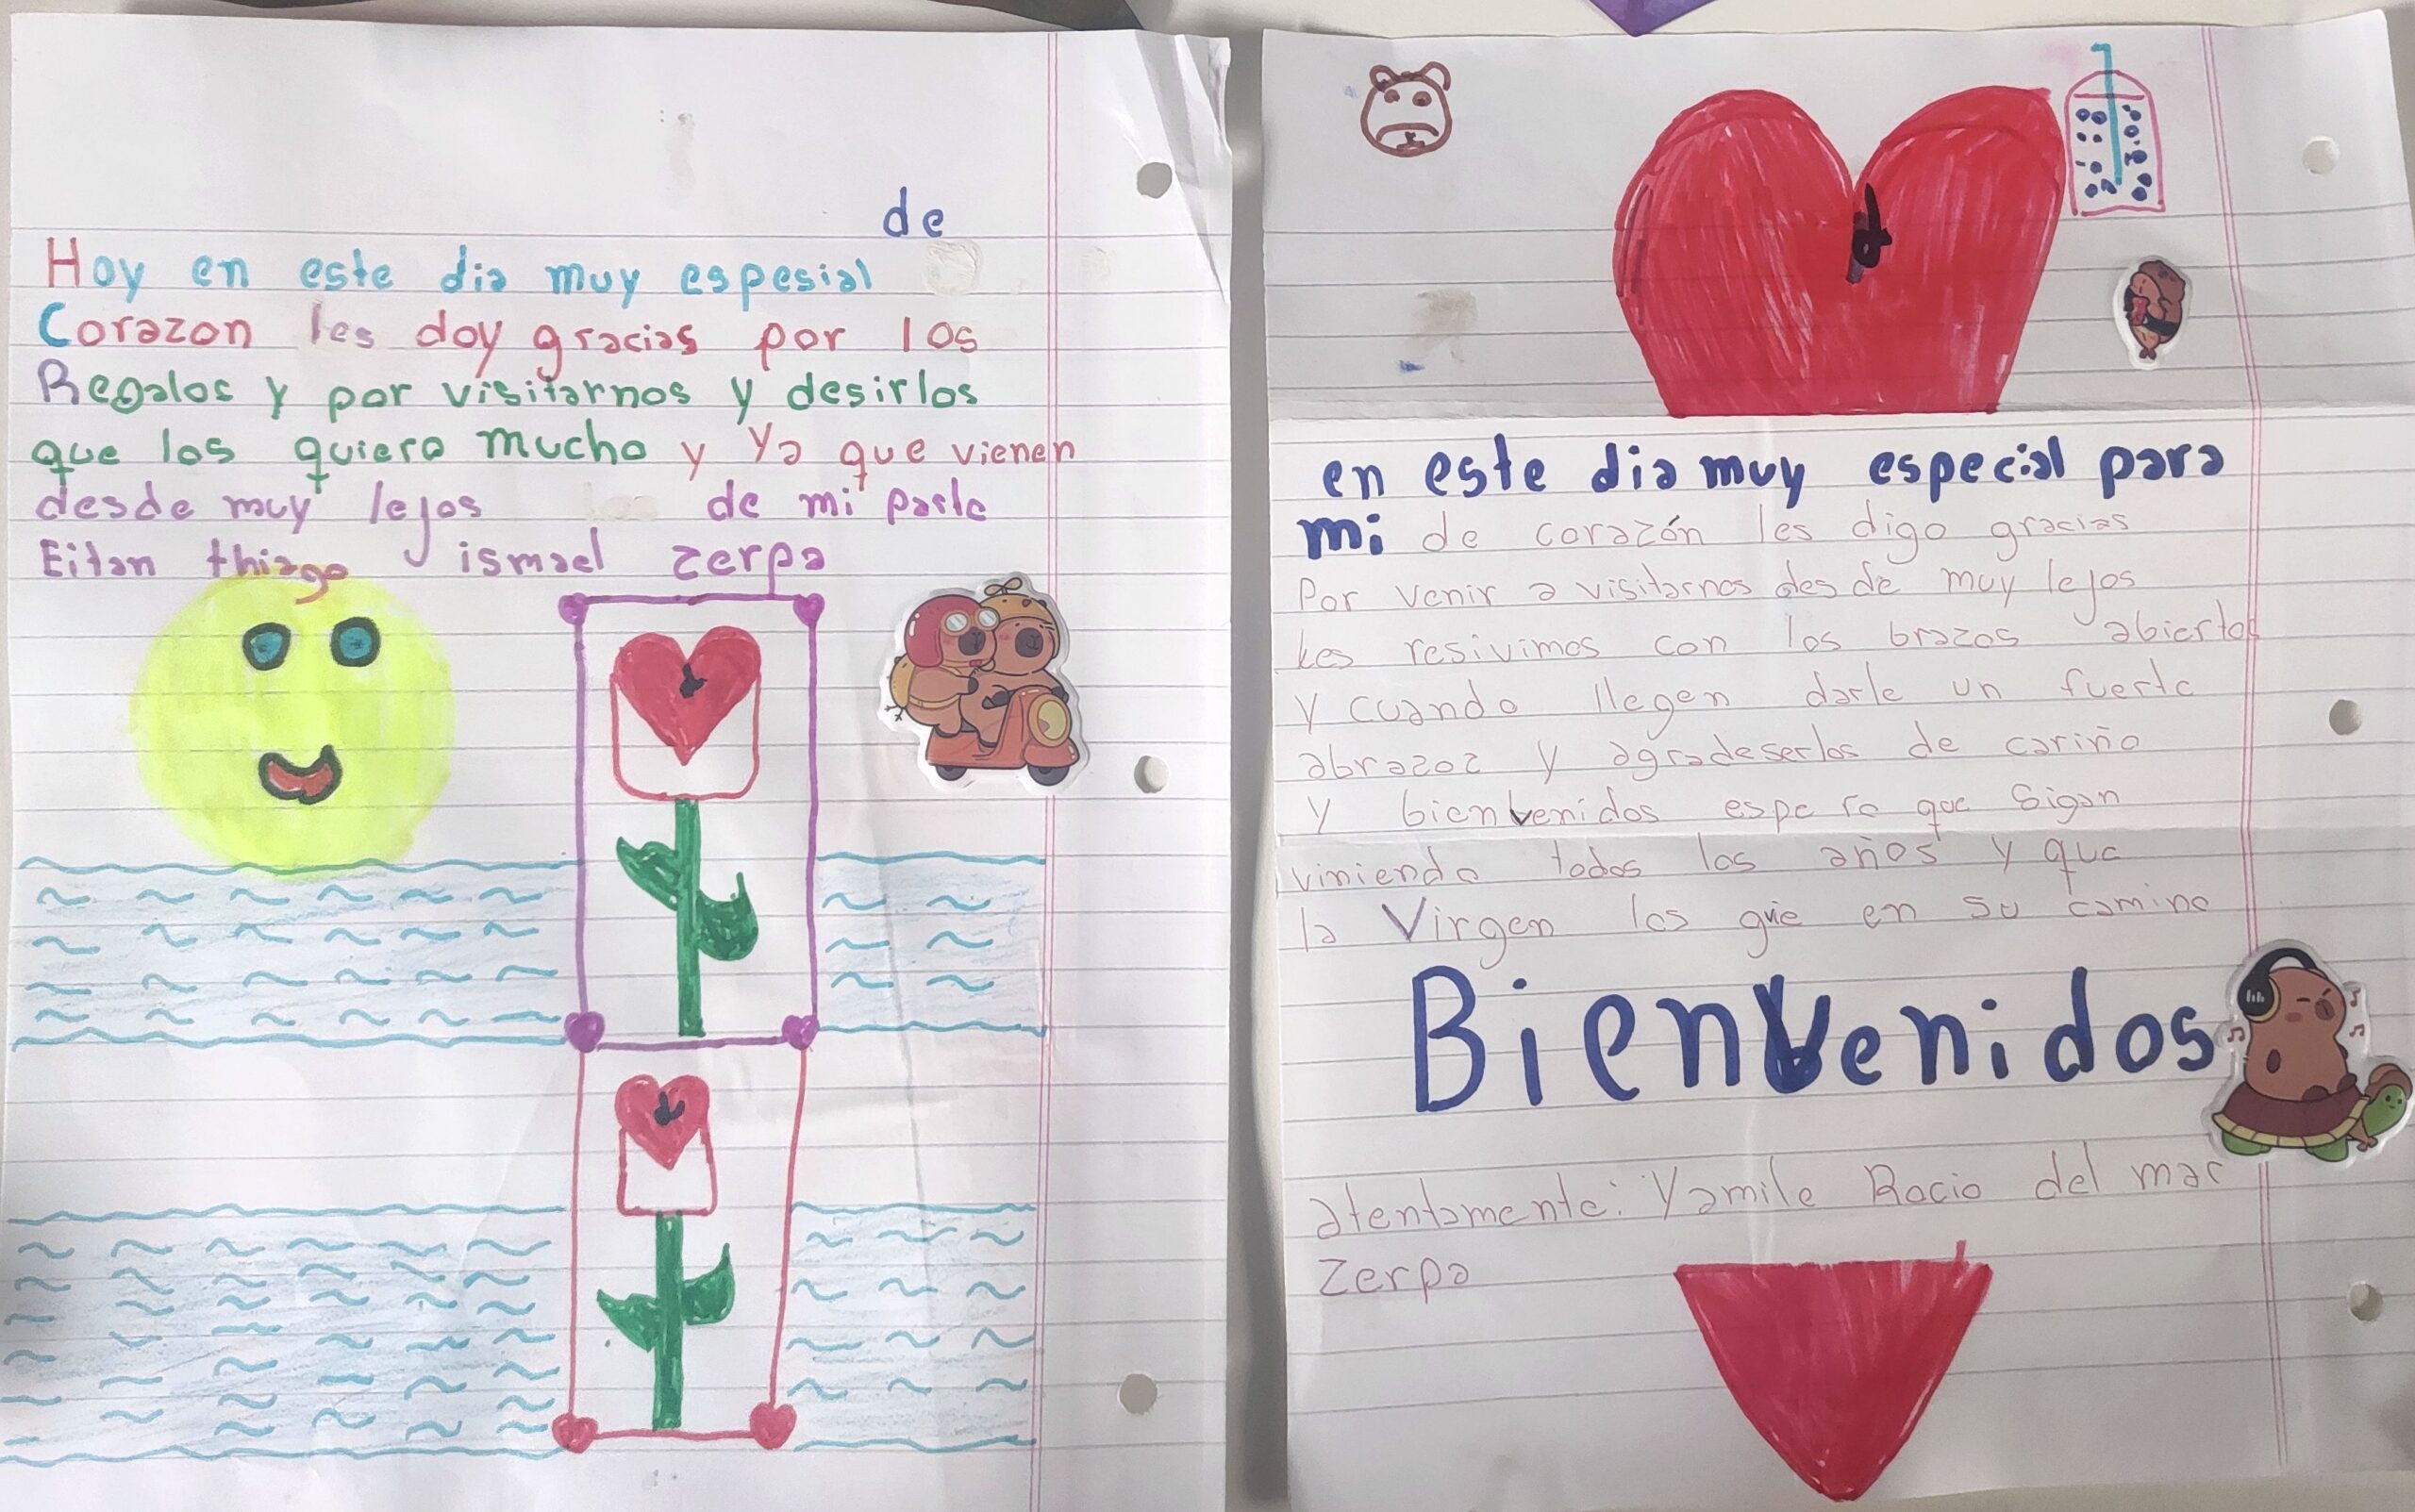 de
Hoy en este dia muy espesial
Corazon les doy gracias por los
Regalos y por visitarnos y desirlos
que los quiero mucho y ya que vienen
desde muy lejos de mi parte
Eitan thiago ismael zerpa
en este dia muy especial para
mi de corazón les digo gracias
Por venir a visitarnos desde muy lejos
Les resivimos con los brazos abiertos
y cuando llegen darle un fuerte
abrazoz y agradeserlos de cariño
y bienvenidos espero que sigan
viniendo todos los años y que
la Virgen los guie en su camino
Bienvenidos
atentamente: Yamile Rocio del mar
Zerpa